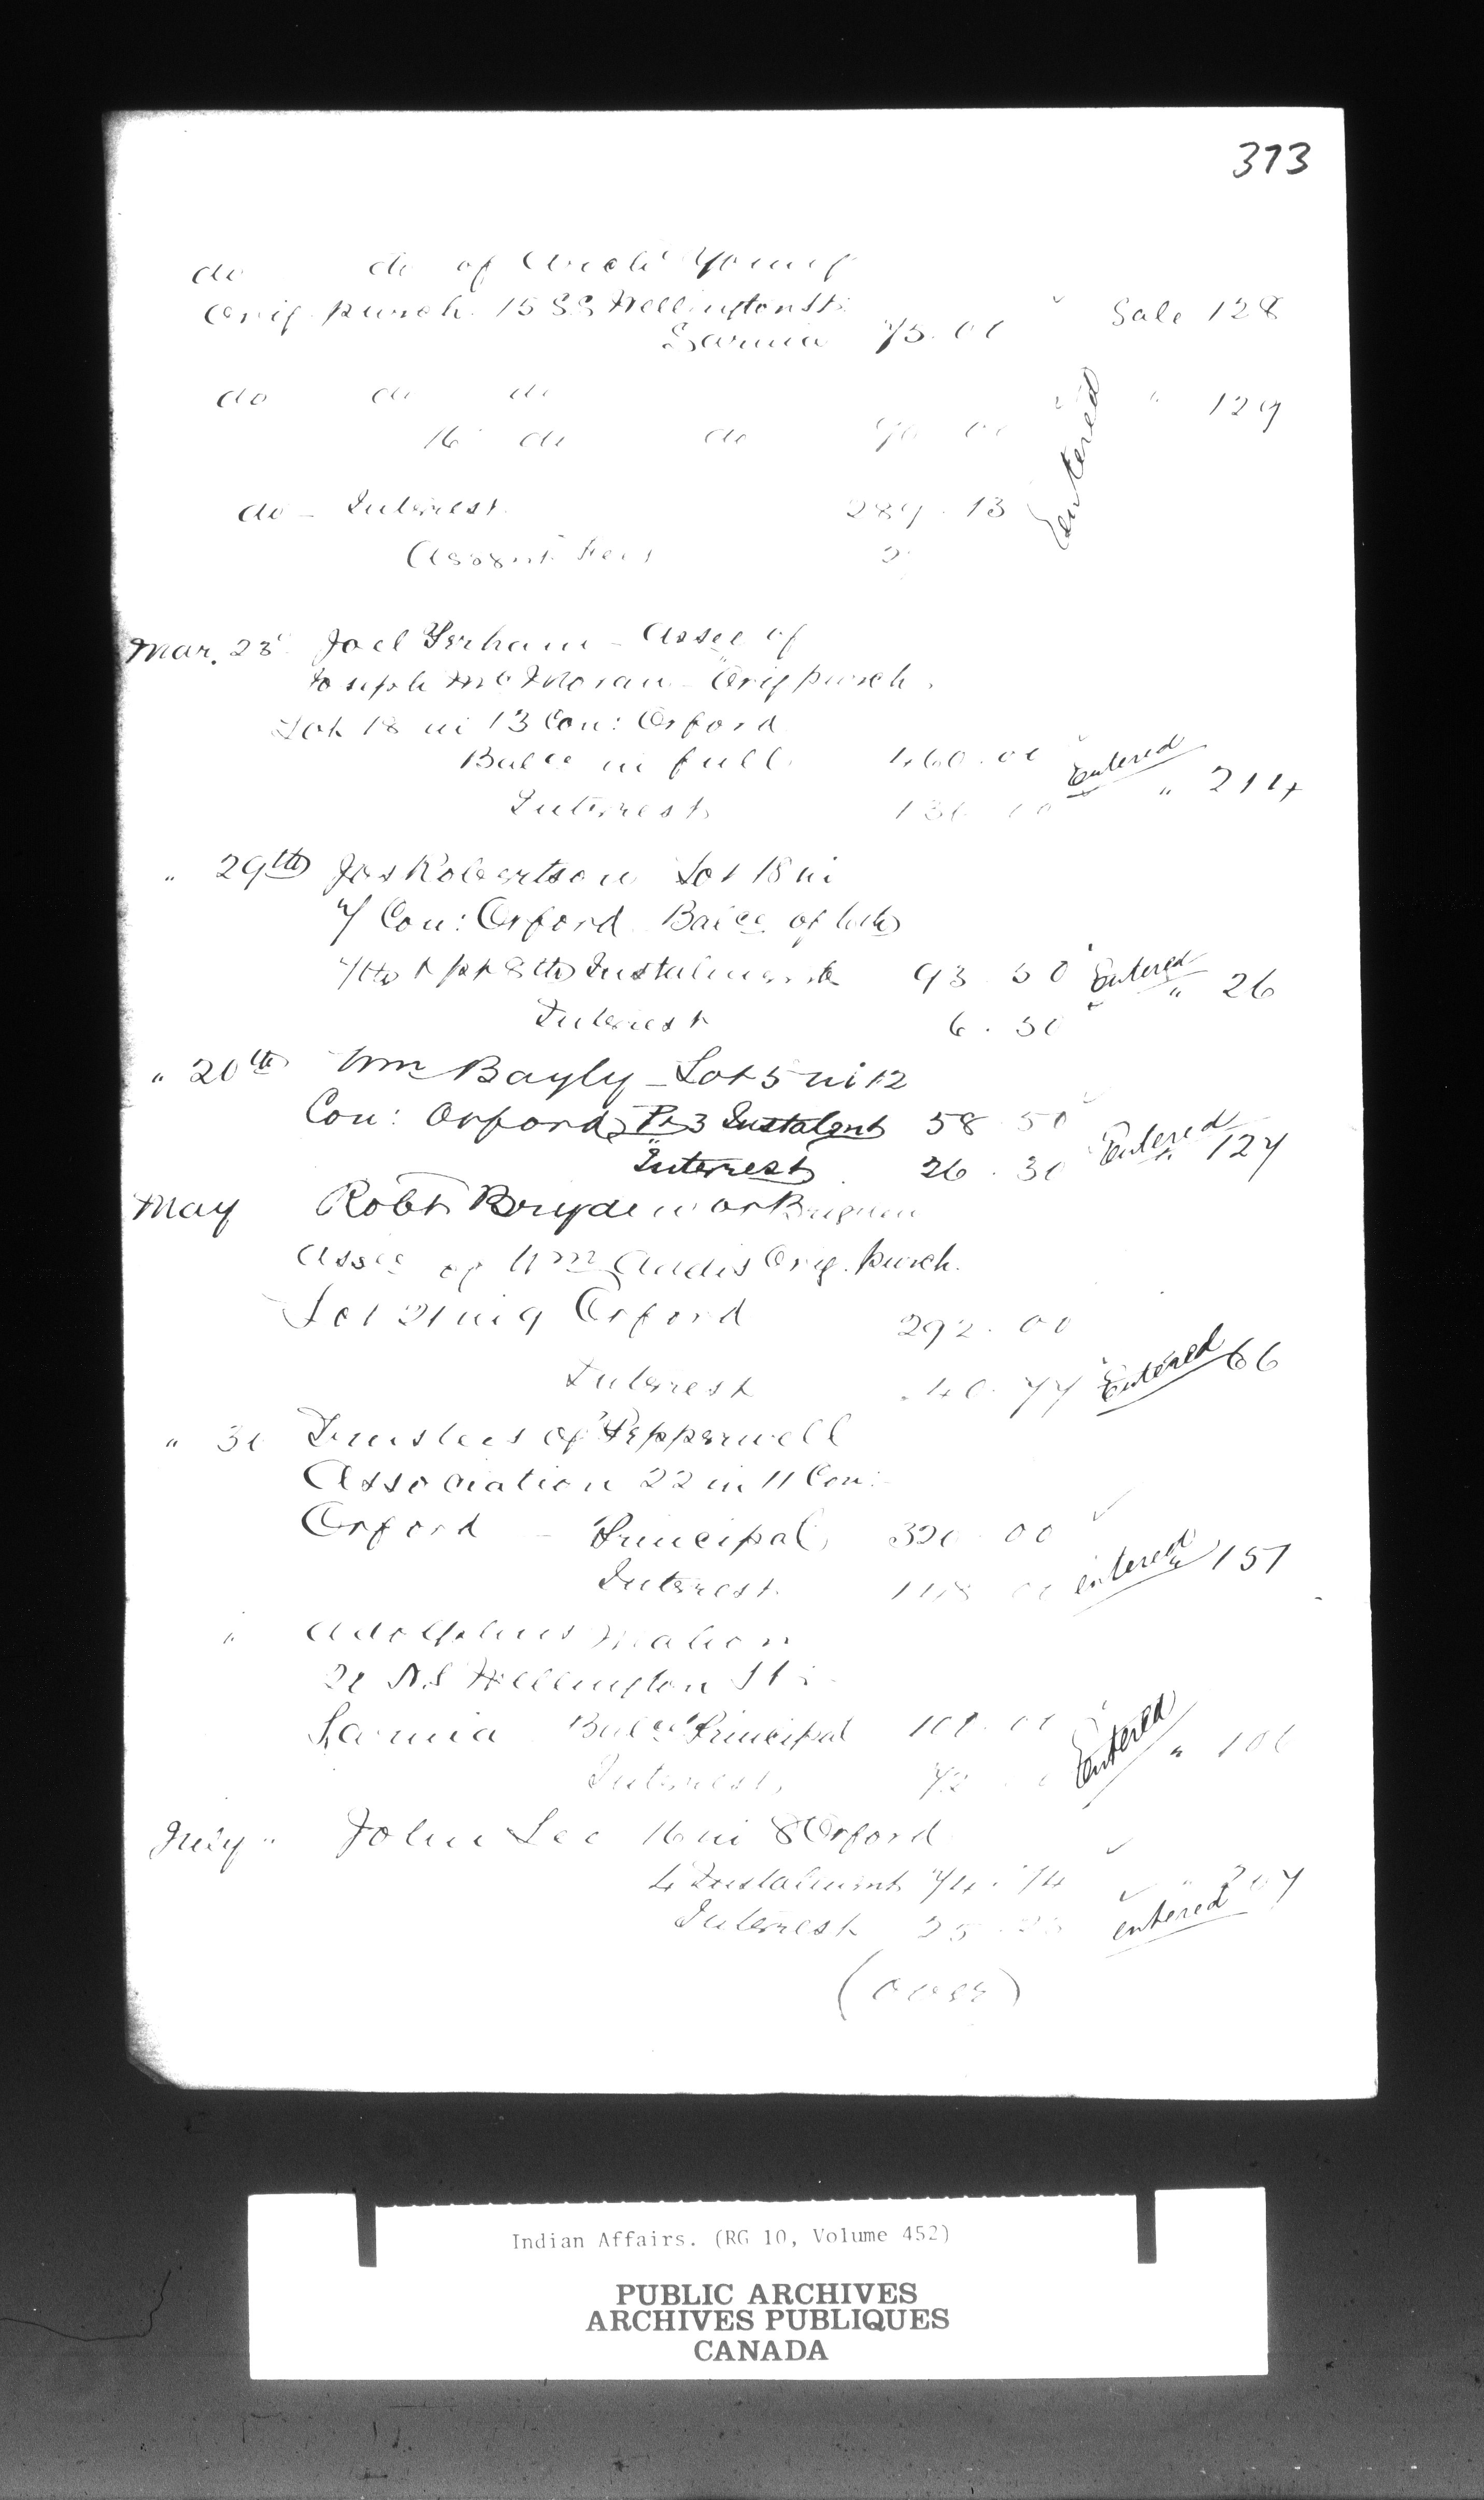 373
do do of Archd Young
Orig. purch. 15 SS Wellington St:
Sarnia 75.00 Sale 128
do do do
16 do do 00 " 129
Entered
do - Interest 289.13
Assnt Fees 2
Mar. 23d Joel Yerham - Assee of
Joseph McMoran - Orig purch.
Lot 18 in 13 Con: Orford
Balce in full 460.00 Entered " 214
Interest
" 29th Jas Robertson Lot 18 in
7 Con: Orford Balce of 6th
7th & pt 8th Instalments 93.50 Entered " 26
Interest 6.50
" 20th Wm Bayly - Lot 5 in 12
Con: Orford Pt 3 Instalmt 58.50
Interest 26.30 Entered " 127
May Robt Bryden or Brignen
Assee of Wm Andis Orig. purch.
Lot 21 in 9 Orford 292.00
Interest 40.77 Entered 66
" 30 Trustees of Pepperwell
Association 22 in 11 Con:
Orford - Principal 320.00
Interest 118 entered " 157
" Adolphus Mahon
N.S Wellington St:
Sarnia Balce Principal Entered " 100
Interest 72
July " John Lee 16 in 8 Orford
4 Instalment 74.74 "
Interest 25 entered
(over)
Indian Affairs. (RG 10, Volume 452)
PUBLIC ARCHIVES
ARCHIVES PUBLIQUES
CANADA